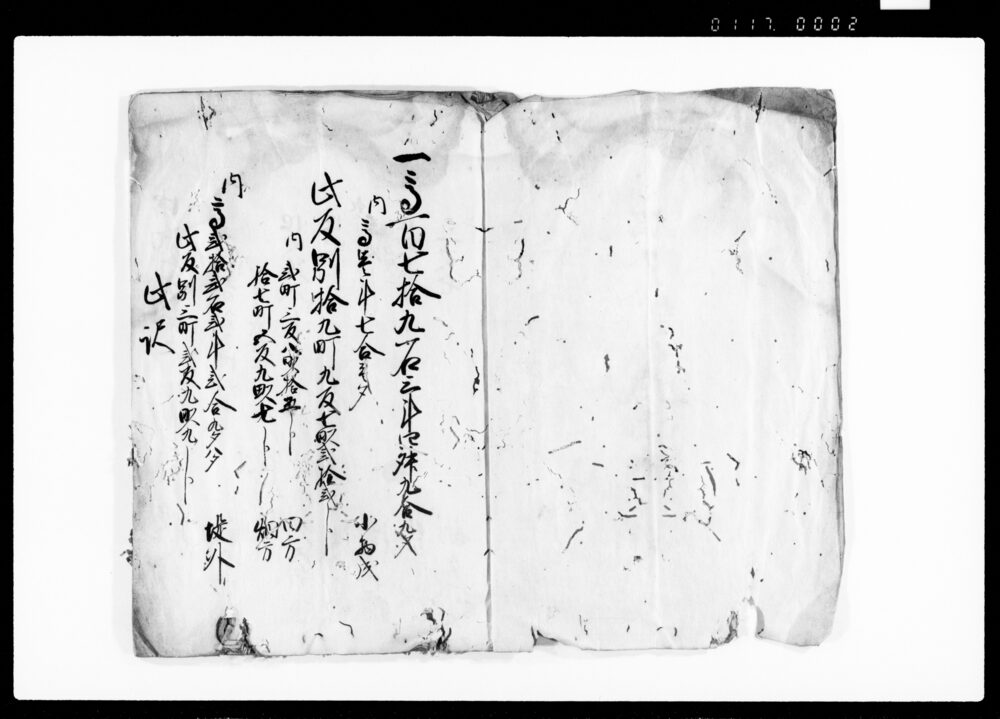 0117 0002
一高百七拾九石三斗四升九合九夕
内高壱斗七合五夕 小物成
此反別拾九町九反七畝弐拾弐歩
内弐町三反八畝拾五歩 田方
拾七町五反九畝七歩 畑方
内高弐拾弐石弐斗弐合九夕八才
此反別三町弐反九畝九歩 堤外
此訳